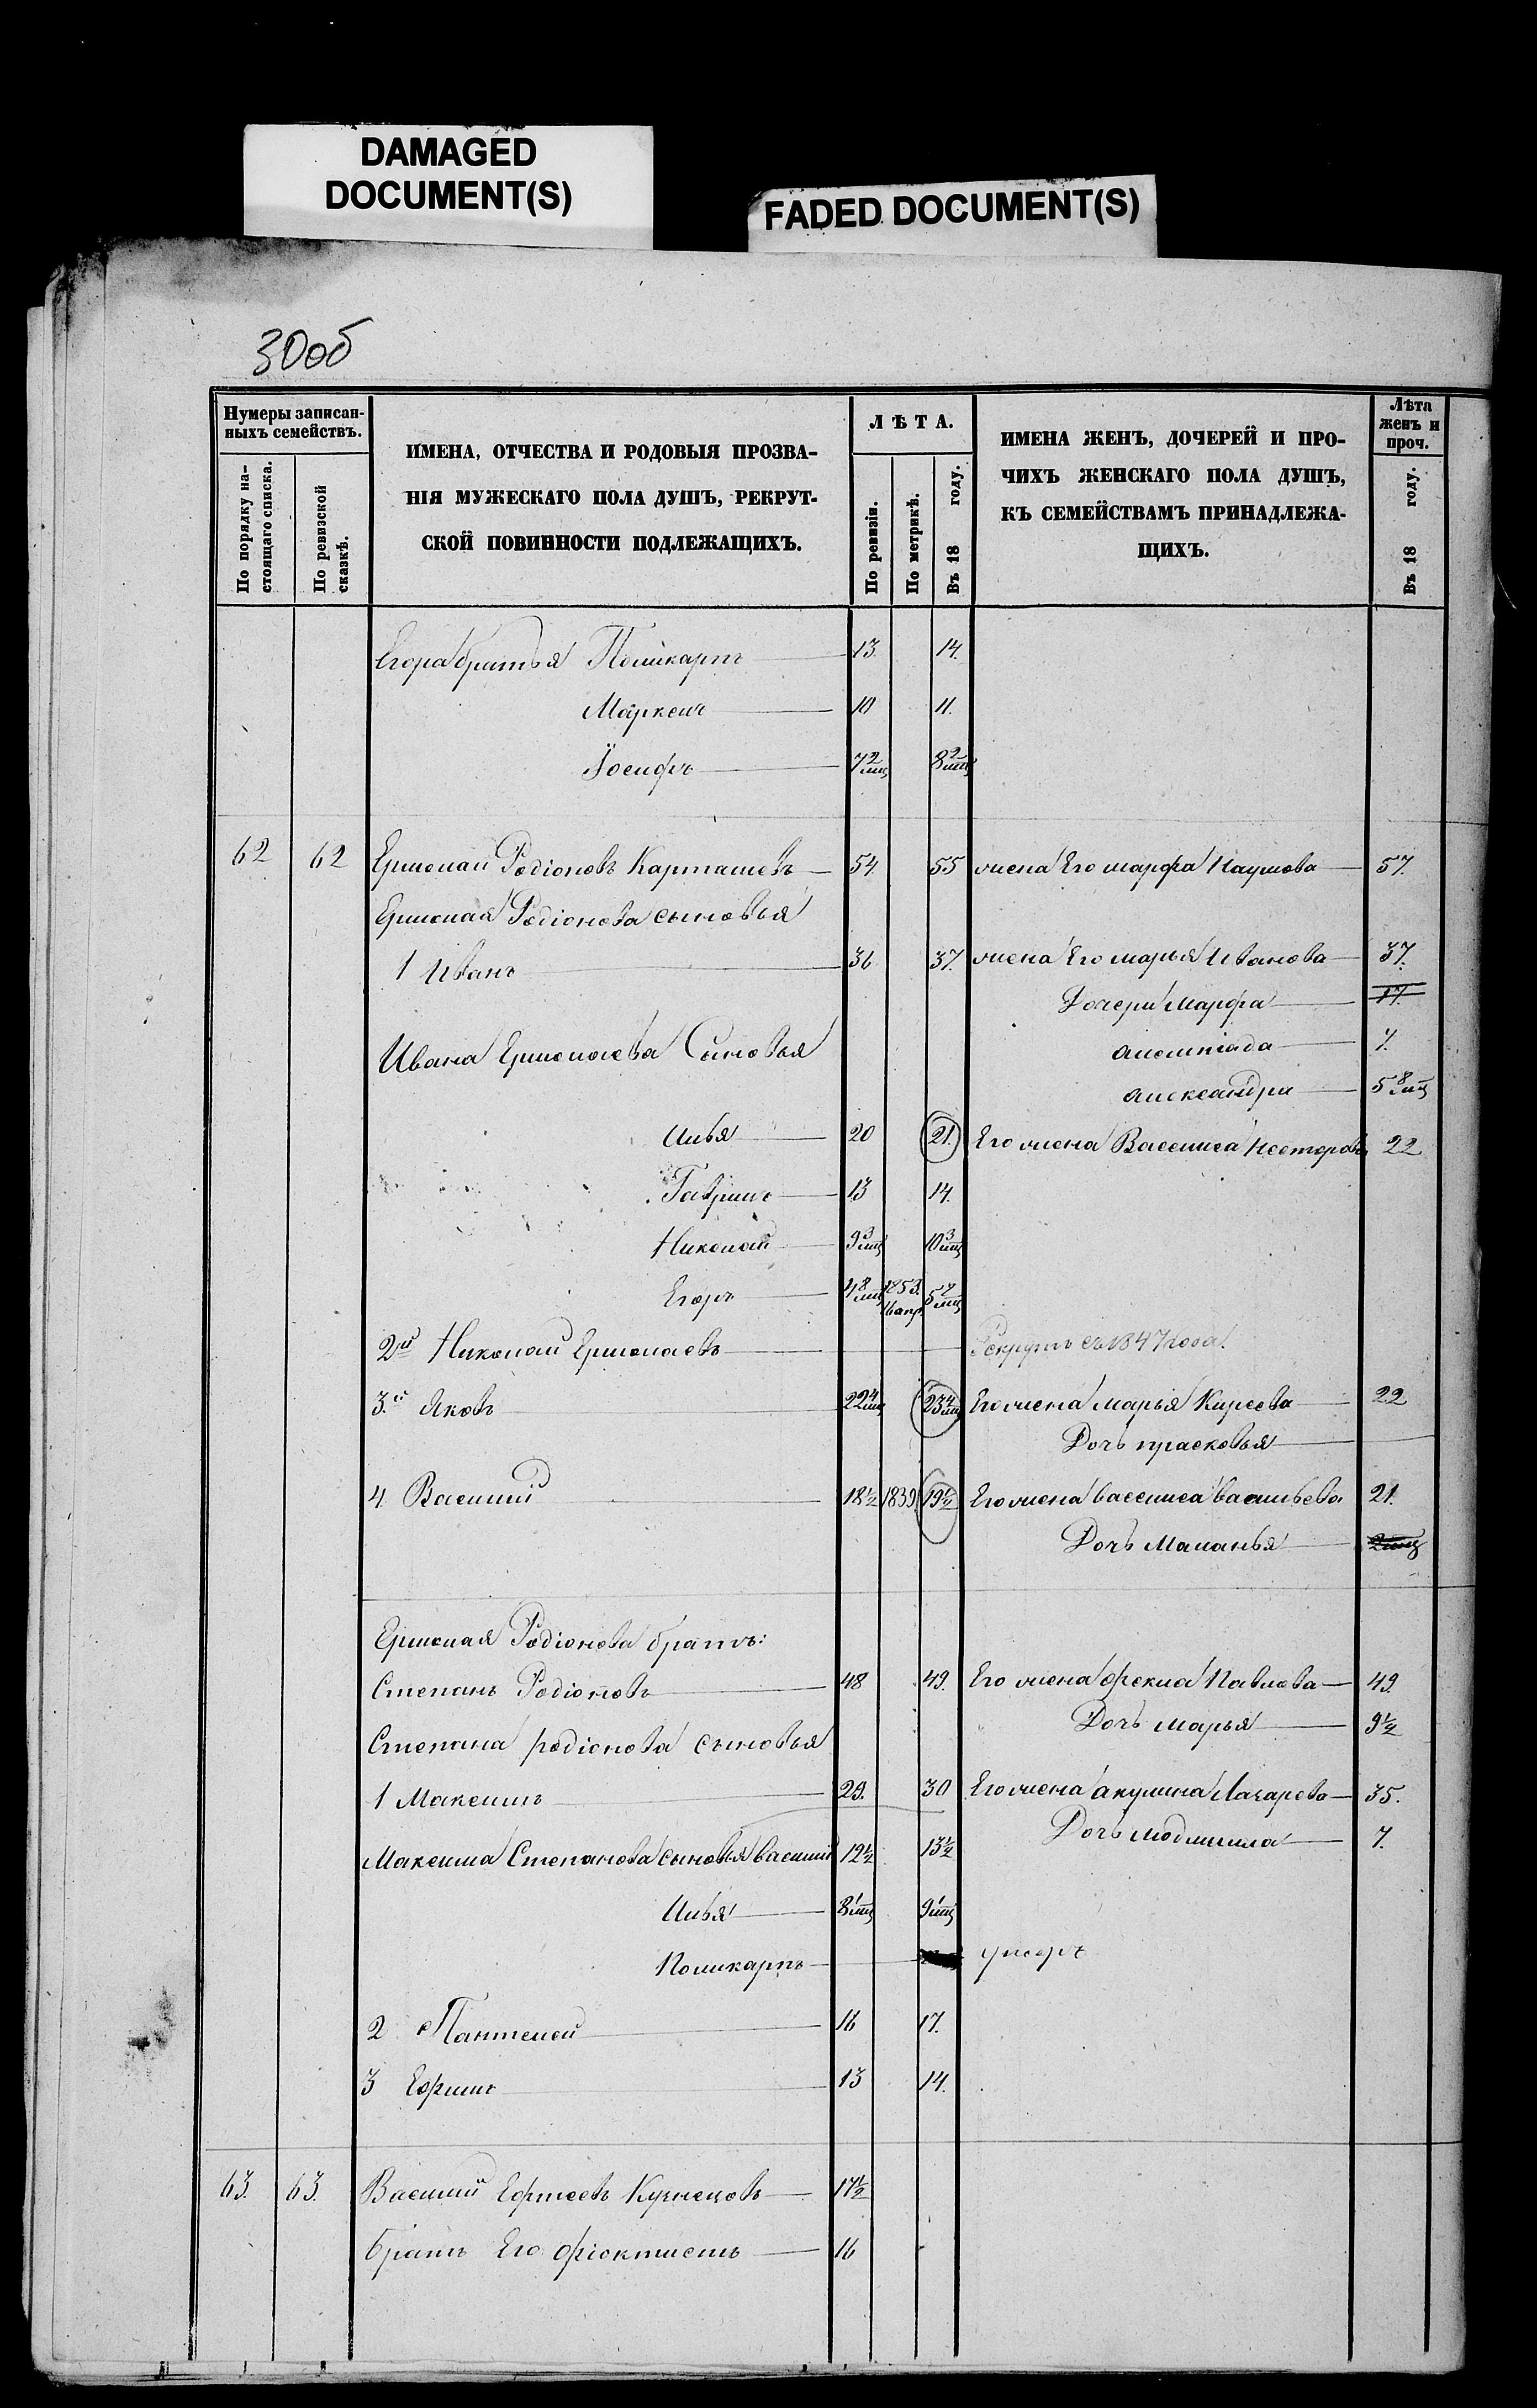 DAMAGED
DOCUMENT(S)
FADED DOCUMENT(S)
30об
Нумеры записан-
ныхъ семействъ.
По порядку на-
стоящаго списка.
По ревизской
сказкѣ.
ИМЕНА, ОТЧЕСТВА И РОДОВЫЯ ПРОЗВА-
НІЯ МУЖЕСКАГО ПОЛА ДУШЪ, РЕКРУТ-
СКОЙ ПОВИННОСТИ ПОДЛЕЖАЩИХЪ.
ЛѢТА.
По ревизіи.
По метрикѣ.
Въ 18 году.
ИМЕНА ЖЕНЪ, ДОЧЕРЕЙ И ПРО-
ЧИХЪ ЖЕНСКАГО ПОЛА ДУШЪ,
КЪ СЕМЕЙСТВАМЪ ПРИНАДЛЕЖА-
ЩИХЪ.
Лѣта
женъ и
проч.
Въ 18 году.
Егора братья Поликарпъ 13 14.
Маркелъ 10 11.
Іосифъ 7 2 мц 8 2 мц
62 62 Ермолай Родіоновъ Карташевъ 54 55 жена Его марфа Наумова 57.
Ермолая Родіонова сыновья
1 Иванъ 36 37. жена Его марья Иванова 37.
Дочери Марфа 17.
Ивана Ермолаева Сыновья алимпіада 7.
александра 5 8 мц
Илья 20 21. Его жена Василиса Несторова 22
Гаврилъ 13 14.
Николай 9 3 мц 10 3 мц
Егоръ 4 8 мц 1853. апр. 5 мц
2й Николай Ермолаевъ Рекрутъ съ 1847 года.
3й Яковъ 22 4 мц 23 4 мц Его жена марья Кирѣева 22
Дочь прасковья
4 Василий 18½ 1839. 19½ Его жена василиса васильева 21.
Дочь Маланья 2 мц
Ермолая Родіонова братъ:
Степанъ Родіоновъ 48 49. Его жена фекла Павлова 49.
Дочь марья 9½
Степана родіонова сыновья
1 Максимъ 29. 30 Его жена акулина Лазарева 35.
Дочь людмила 7.
Максима Степанова сыновья василий 12½ 13½
Илья 8 1 мц 9 1 мц
Поликарпъ умеръ
2 Пантелей 16 17.
3 Ефимъ 13 14.
63. 63. Василий Кузнецовъ 17½
братъ Его фіоктистъ 16